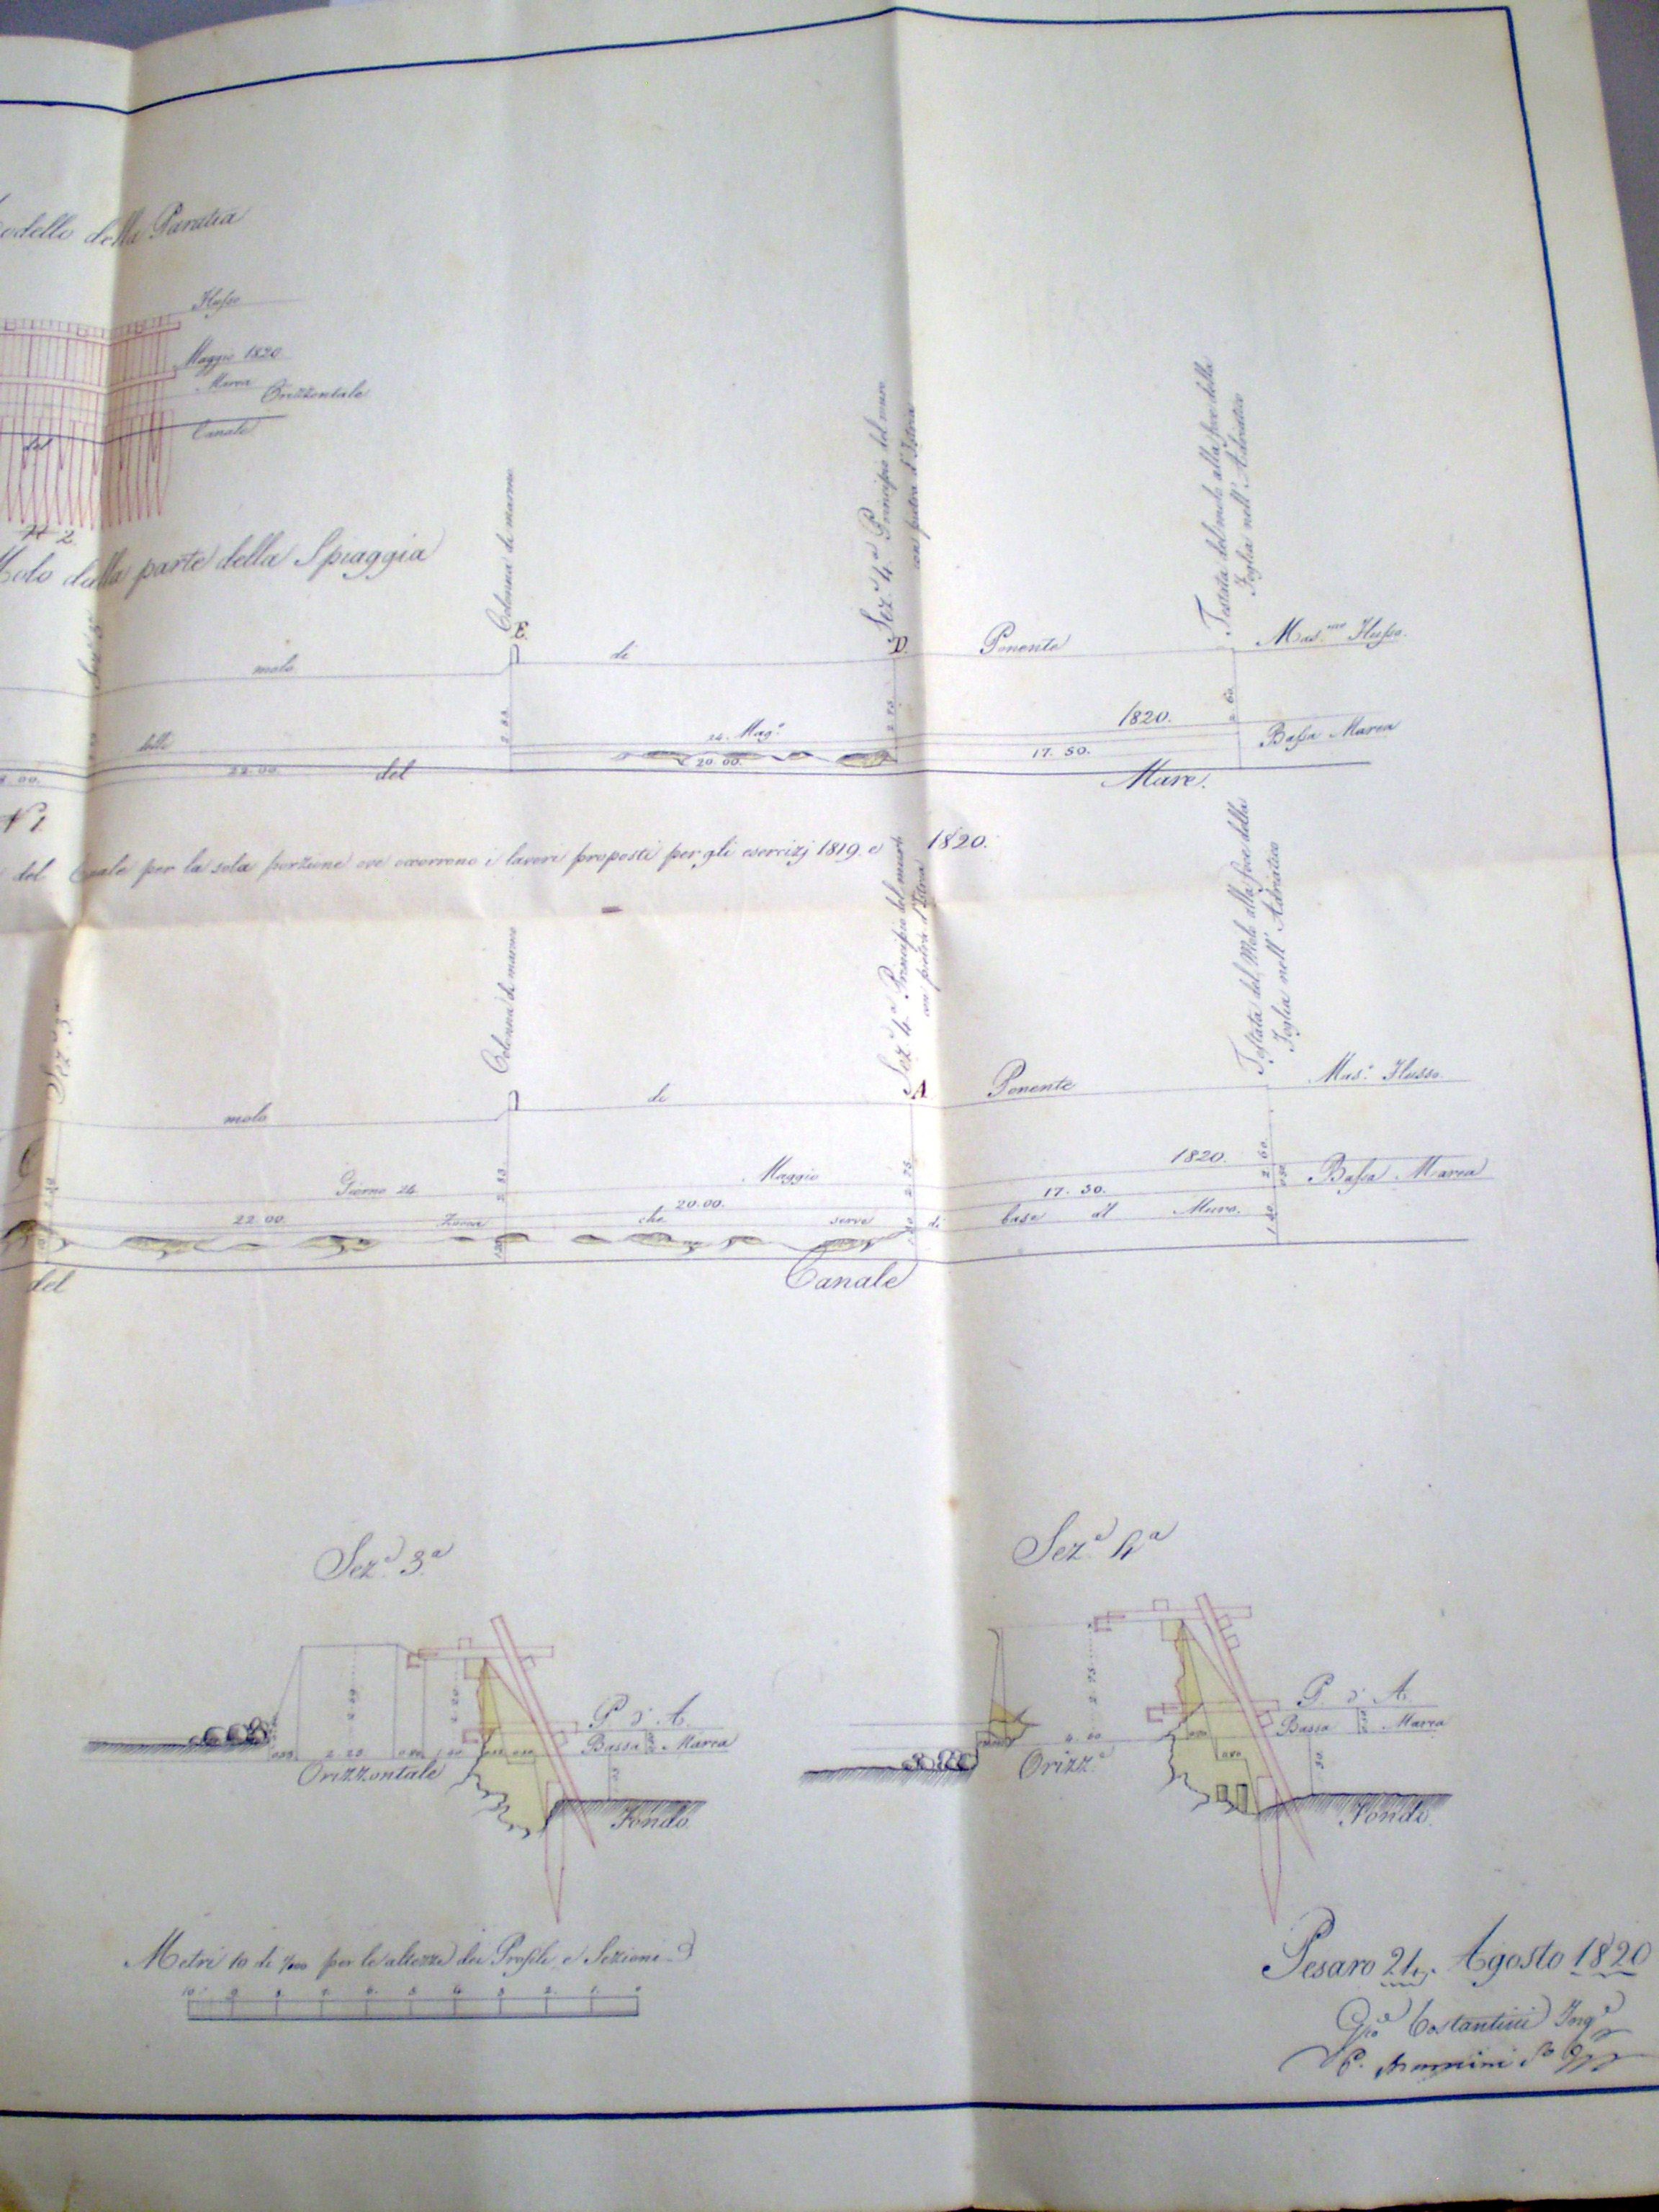 odello della Paratia
Flusso
Maggio 1820
Marea
Orizzontale
Canale
del
N 2
Molo dalla parte della Spiaggia
Colonna di marmo
Sez.e 4.a Principio del muro
con pietra d'Istria
Testata del molo alla foce della
Foglia nell'Adriatico
E.
D.
molo
di
Ponente
Mas.mo Flusso.
2.60
24. Mag.o
1820.
Bassa Marea
22.00
20.00.
17.50.
del
Mare.
N 1.
del Canale per la sola porzione ove occorrono i lavori proposti per gli esercizj 1819. e 1820.
Sez.e 3.a
Colonna di marmo
Sez.e 4.a Principio del muro
con pietra d'Istria
Testata del Molo alla foce della
Foglia nell'Adriatico
A
molo
di
Ponente
Mas.o Flusso.
2.75
2.60
0.50
Giorno 24
Maggio
1820.
Bassa Marea
22.00.
20.00.
17.50.
che
serve
di
base
al
Muro.
del
Canale
Sez.e 3.a
Sez.e 4.a
P. d'A.
Bassa Marea
Orizzontale
Fondo.
2.75
P. d'A.
Bassa Marea
Orizz.e
Fondo.
Metri 10 di 1/100 per le altezze dei Profili, e Sezioni
10 9 8 7 6 5 4 3 2 1 0
Pesaro 21 Agosto 1820
Costantini Ing.e